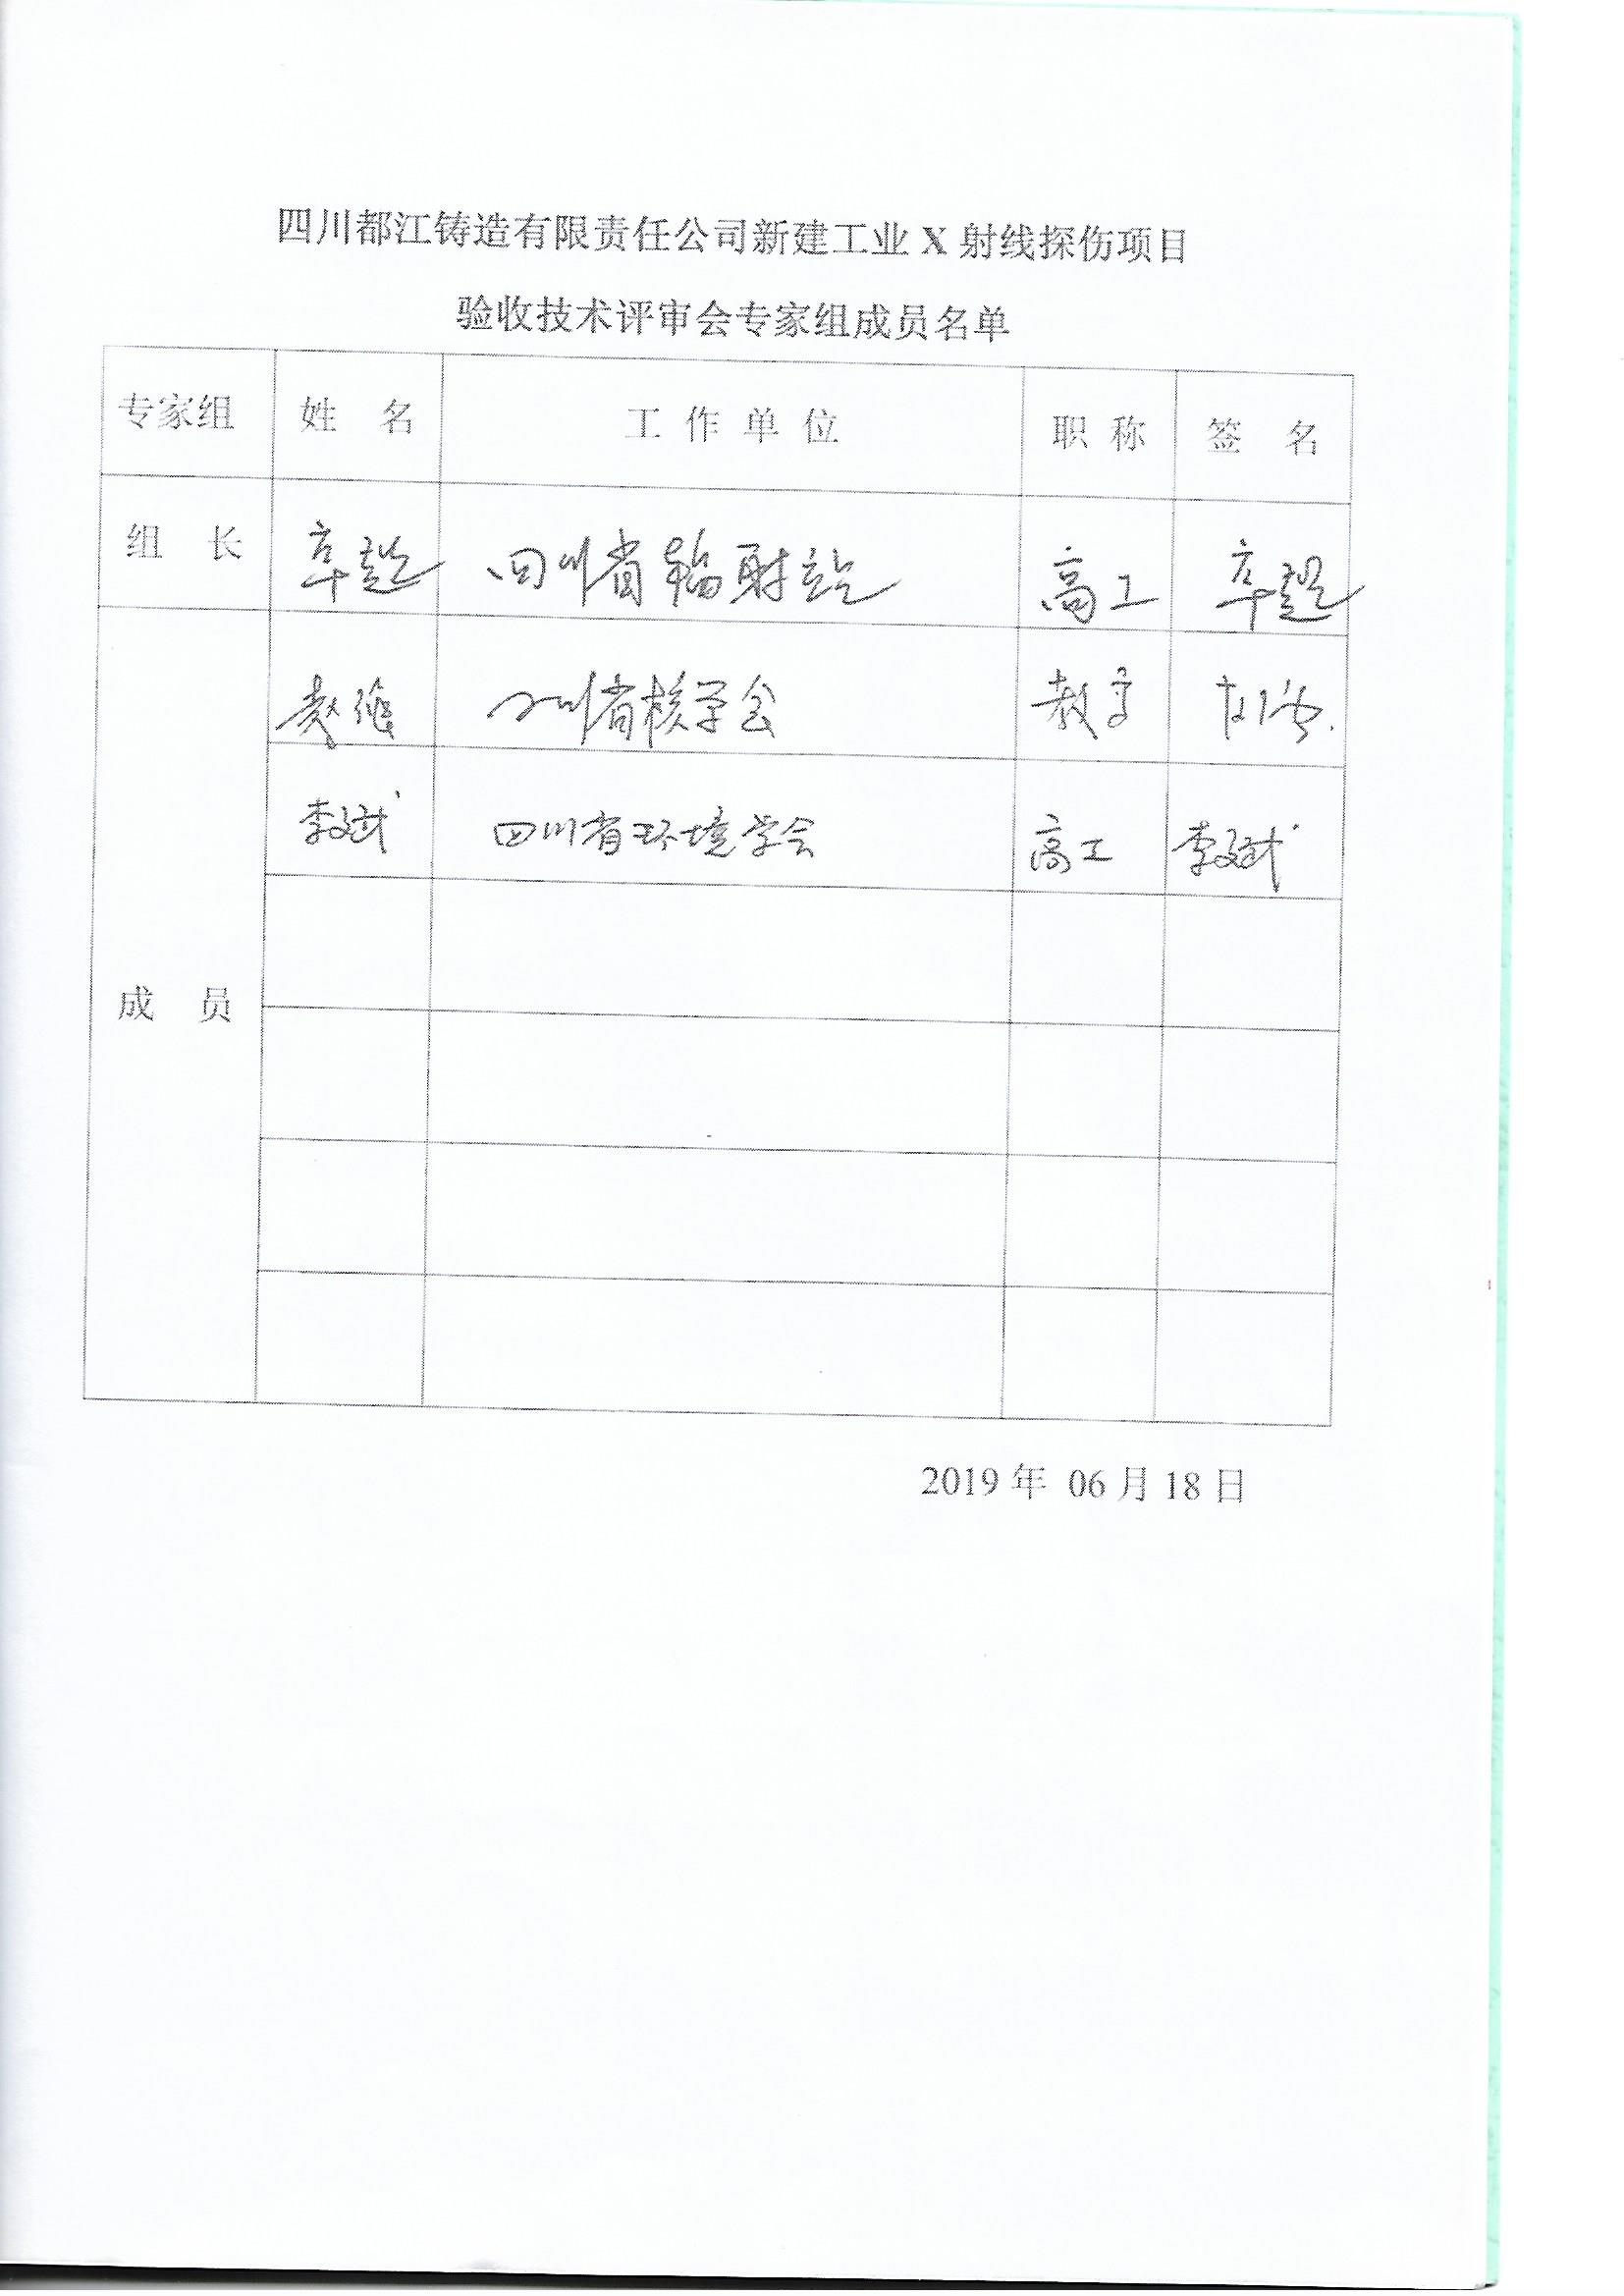 四川都江铸造有限责任公司新建工业 X 射线探伤项目
验收技术评审会专家组成员名单
专家组 姓 名 工 作 单 位 职 称 签 名
组 长 四川省辐射站 高工
四川省核学会 教高
李斌 四川省环境学会 高工 李斌
成 员
2019 年 06 月 18 日